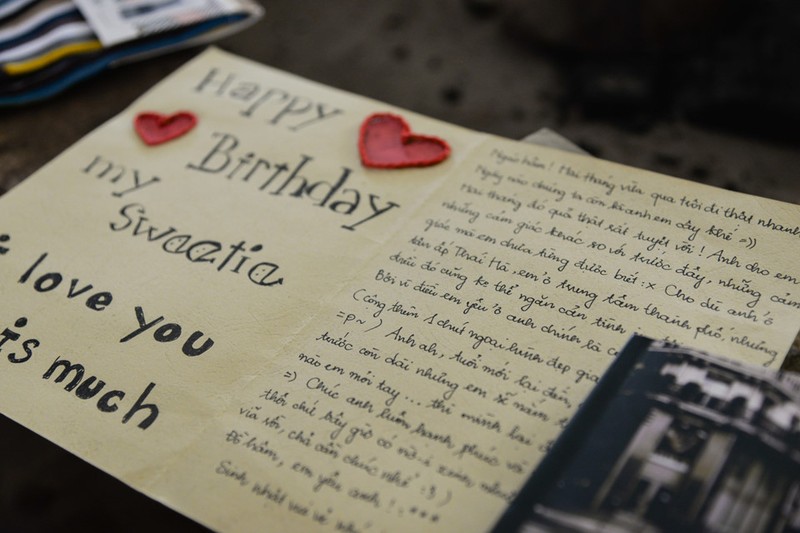 Happy
Birthday
my
Sweetie
I love you
is much
Người hâm! Hai tháng vừa qua trôi đi thật nhanh
Ngày nào chúng ta còn là anh em cây khế =))
Hai tháng đó quả thật rất tuyệt vời! Anh cho em
những cảm giác khác so với trước đây, những cảm
giác mà em chưa từng được biết :x Cho dù anh ở
Thái Hà, em ở trung tâm thành phố, nhưng
điều đó cũng ko thể ngăn cản tình
Bởi vì điều em yêu ở anh chính là
(Cộng thêm 1 chút ngoại hình đẹp
=p~) Anh ah, tuổi mới lại đến,
trước còn dài nhưng em sẽ nắm
nào em mỏi tay... thì mình lại
=) Chúc anh luôn hạnh phúc và
thôi chứ bây giờ có
vừa rồi, chả cần chúc nhé :3)
Đồ hâm, em yêu anh!
Sinh nhật vui vẻ